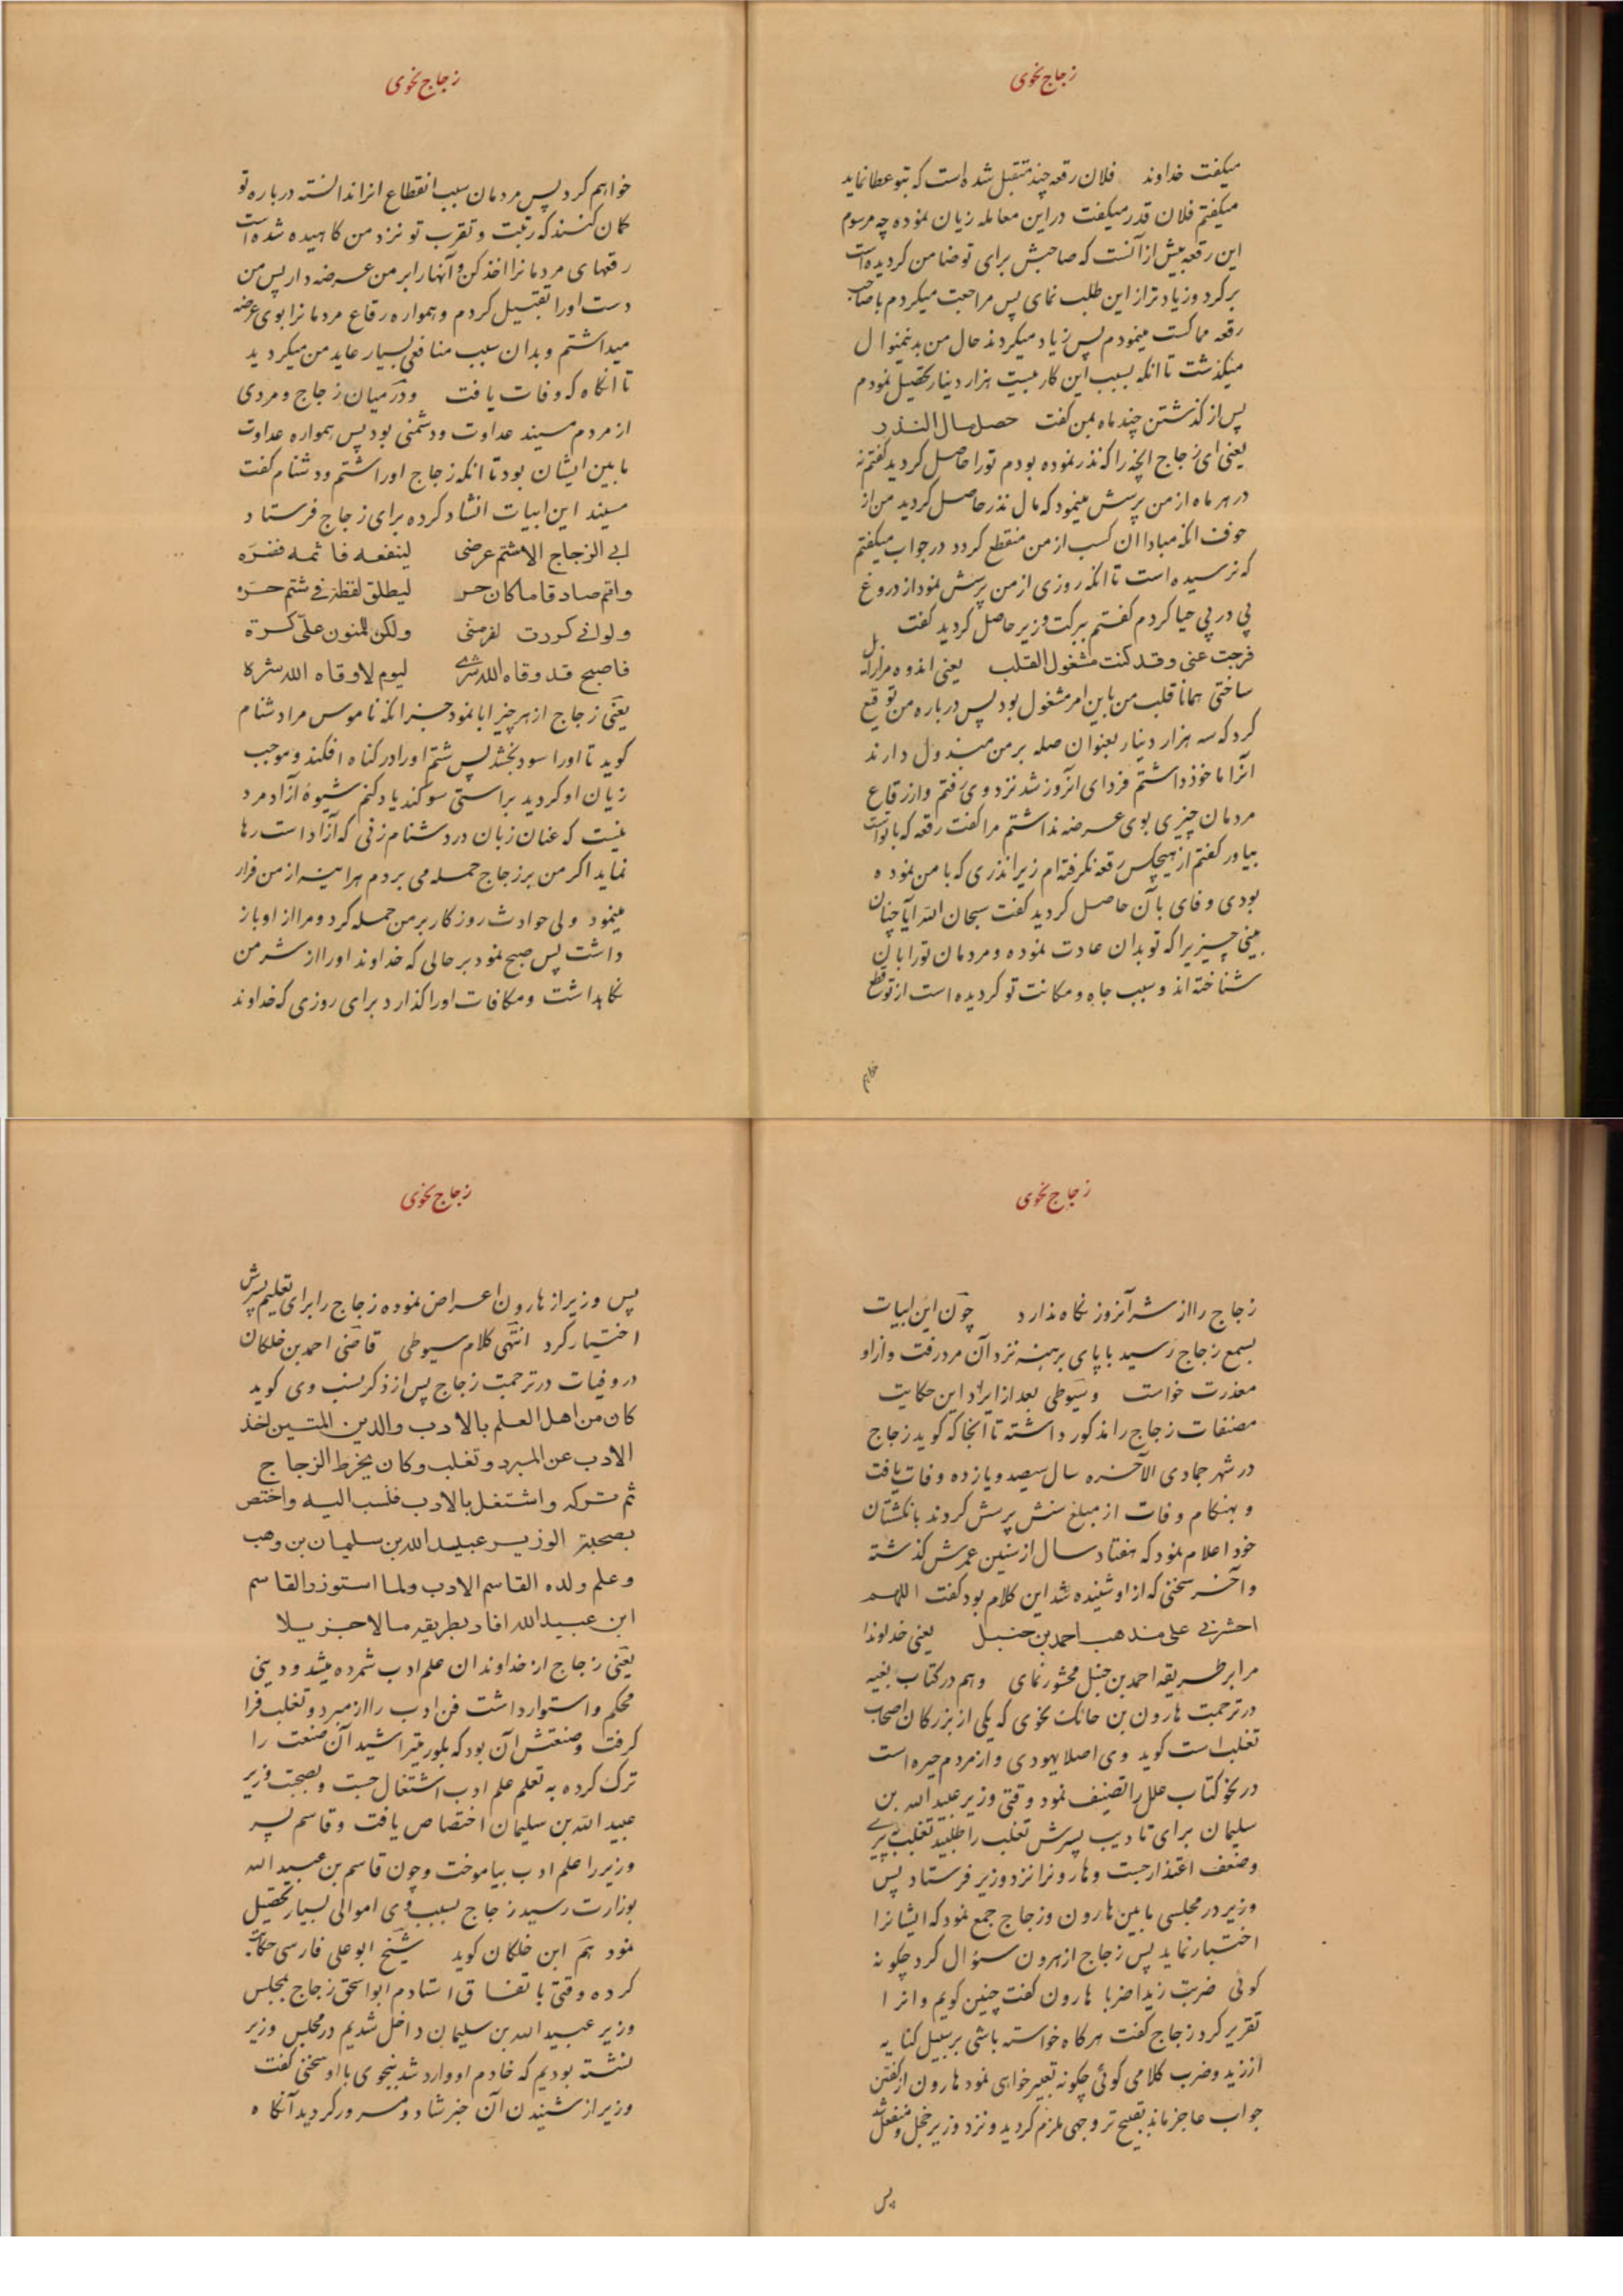 زجاج نحوی
میکفت خداوند فلان رقعه چند متقبل شده است که بتو عطا نماید
میکفتم فلان قدر میکفت در این معامله زیان نموده چه مرسوم
این رقعه بیش از آنست که صاحبش برای تو ضامن کردیده است
برکرد و زیادتر از این طلب نمای پس مراجعت میکردم با صاحب
رقعه مماکست مینمودم پس زیاد میکردند حال من بدینمنوال
میکذشت تا انکه بسبب این کار بیست هزار دینار تحصیل نمودم
پس از کذشتن چند ماه بمن کفت حصل مال النذر
یعنی ای زجاج انچه را که نذر نموده بودم تو را حاصل کردید کفتم نه
در هر ماه از من پرسش مینمود که مال نذر حاصل کردید من از
خوف انکه مبادا ان کسب از من منقطع کردد در جواب میکفتم
که نرسیده است تا انکه روزی از من پرسش نمود از دروغ
پی در پی حیا کردم کفتم ببرکت وزیر حاصل کردید کفت
فرجت عنی و قد کنت مشغول القلب یعنی اندوه مرا زایل
ساختی همانا قلب من باین امر مشغول بود پس درباره من توقیع
کرد که سه هزار دینار بعنوان صله بر من مبذول دارند
آنرا ماخوذ داشتم فردای انروز شد نزد وی رفتم و از رقاع
مردمان چیزی بوی عرضه نداشتم مرا کفت رقعه که با تو است
بیاور کفتم از هیچکس رقعه نکرفته ام زیرا نذری که با من نموده
بودی وفای بآن حاصل کردید کفت سبحان الله آیا چنان
بینی چیزیرا که تو بدان عادت نموده و مردمان تو را بان
شناخته اند و سبب جاه و مکانت تو کردیده است از تو قطع
خواهم
زجاج نحوی
خواهم کرد پس مردمان سبب انقطاع انرا ندانسته درباره تو
کمان کنند که رتبت و تقرب تو نزد من کاهیده شده است
رقعهای مردمانرا اخذ کن و آنها را بر من عرضه دار پس من
دست او را تقبیل کردم و همواره رقاع مردمانرا بوی عرضه
میداشتم و بدان سبب منافعی بسیار عاید من میکردید
تا انکاه که وفات یافت و در میان زجاج و مردی
از مردم مسیند عداوت و دشمنی بود پس همواره عداوت
ما بین ایشان بود تا انکه زجاج او را شتم و دشنام کفت
مسیند این ابیات انشاد کرده برای زجاج فرستاد
ابی الزجاج الا شتم عرضی لینفعه فاثمه فضره
واقسم صادقا ما کان حر لیطلق لفظه فی شتم حره
ولو انی کررت لفر منی ولکن للمنون علی کره
فاصبح قد وقاه الله شری لیوم لا وقاه الله شره
یعنی زجاج از هر چیز ابا نمود جز انکه ناموس مرا دشنام
کوید تا او را سود بخشد پس شتم او را در کناه افکند و موجب
زیان او کردید براستی سوکند یاد کنم شیوه آزاد مرد
نیست که عنان زبان در دشنام زنی که آزاد است رها
نماید اکر من بر زجاج حمله می بردم هراینه از من فرار
مینمود ولی حوادث روزکار بر من حمله کرد و مرا از او باز
داشت پس صبح نمود بر حالی که خداوند او را از شر من
نکاهداشت و مکافات او را کذارد برای روزی که خداوند
زجاج نحوی
زجاج را از شر آنروز نکاه مذارد چون این ابیات
بسمع زجاج رسید با پای برهنه نزد آن مرد رفت و از او
معذرت خواست و سیوطی بعد از ایراد این حکایت
مصنفات زجاج را مذکور داشته تا آنجا که کوید زجاج
در شهر جمادی الآخره سال سیصد و یازده وفات یافت
و بهنکام وفات از مبلغ سنش پرسش کردند بانکشتان
خود اعلام نمود که هفتاد سال از سنین عمرش کذشته
و آخر سخنی که از او شنیده شد این کلام بود کفت اللهم
احشرنی علی مذهب احمد بن حنبل یعنی خداوندا
مرا بر طریقه احمد بن حنبل محشور نمای و هم در کتاب بغیه
در ترجمت هارون بن حائک نحوی که یکی از بزرکان اصحاب
ثعلب است کوید وی اصلا یهودی و از مردم حیره است
در نحو کتاب علل را تصنیف نمود وقتی وزیر عبید الله بن
سلیمان برای تادیب پسرش ثعلب را طلبید ثعلب به پیری
و ضعف اعتذار جست و هارونرا نزد وزیر فرستاد پس
وزیر در مجلسی ما بین هارون و زجاج جمع نمود که ایشانرا
اختبار نماید پس زجاج از هرون سؤال کرد چکونه
کوئی ضربت زیدا ضربا هارون کفت چنین کویم و انرا
تقریر کرد زجاج کفت هرکاه خواسته باشی بر سبیل کنایه
از زید و ضرب کلامی کوئی چکونه تعبیر خواهی نمود هارون از کفتن
جواب عاجز ماند بقبیح تر وجهی ملزم کردید و نزد وزیر خجل و منفعل شد
پس
زجاج نحوی
پس وزیر از هارون اعراض نموده زجاج را برای تعلیم پسرش
اختیار کرد انتهی کلام سیوطی قاضی احمد بن خلکان
در وفیات در ترجمت زجاج پس از ذکر نسب وی کوید
کان من اهل العلم بالادب والدین المتین اخذ
الادب عن المبرد و ثعلب و کان یخرط الزجاج
ثم ترکه واشتغل بالادب فنسب الیه واختص
بصحبة الوزیر عبید الله بن سلیمان بن وهب
وعلم ولده القاسم الادب ولما استوزر القاسم
ابن عبید الله افاد بطریقه مالا جزیلا
یعنی زجاج از خداوندان علم ادب شمرده میشد و دینی
محکم و استوار داشت فن ادب را از مبرد و ثعلب فرا
کرفت و صنعتش آن بود که بلور میتراشید آن صنعت را
ترک کرده به تعلم علم ادب اشتغال جست و بصحبت وزیر
عبید الله بن سلیمان اختصاص یافت و قاسم پسر
وزیر را علم ادب بیاموخت و چون قاسم بن عبید الله
بوزارت رسید زجاج بسبب وی اموالی بسیار تحصیل
نمود هم ابن خلکان کوید شیخ ابو علی فارسی حکایت
کرده وقتی باتفاق استادم ابو اسحق زجاج بمجلس
وزیر عبید الله بن سلیمان داخل شدیم در مجلس وزیر
نشسته بودیم که خادم او وارد شد بنجوی با او سخنی کفت
وزیر از شنیدن آن خبر شاد و مسرور کردید آنکاه